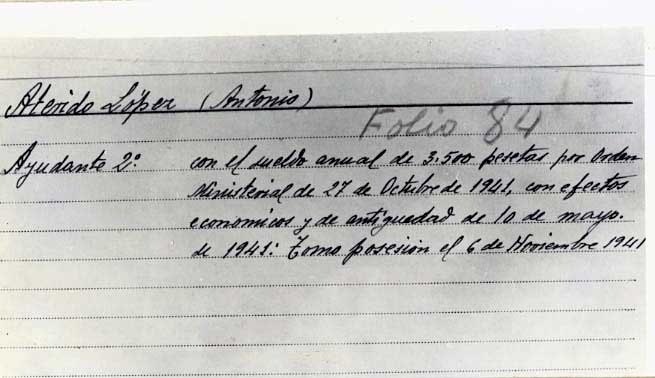 Aterido López (Antonio)
Folio 84
Ayudante 2º con el sueldo anual de 3.500 pesetas por Orden
Ministerial de 27 de Octubre de 1941, con efectos
economicos y de antiguedad de 10 de mayo.
de 1941: Toma posesión el 6 de Noviembre 1941